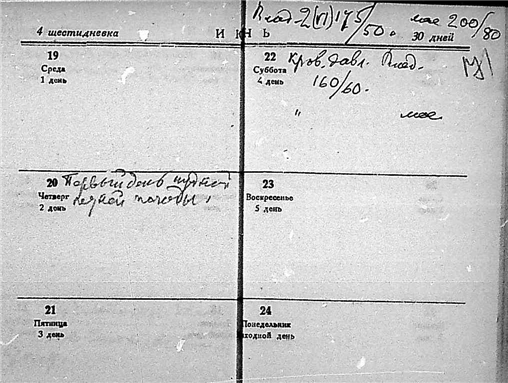 Влад. 2(VI) 175/50. мое 200/80
4 шестидневка
ИЮНЬ
30 дней
19
Среда
1 день
20
Четверг
2 день
Первый день чудной
летней погоды.
21
Пятница
3 день
22
Суббота
4 день
Кров. давл. Влад.
160/60.
" мое
23
Воскресенье
5 день
24
Понедельник
выходной день